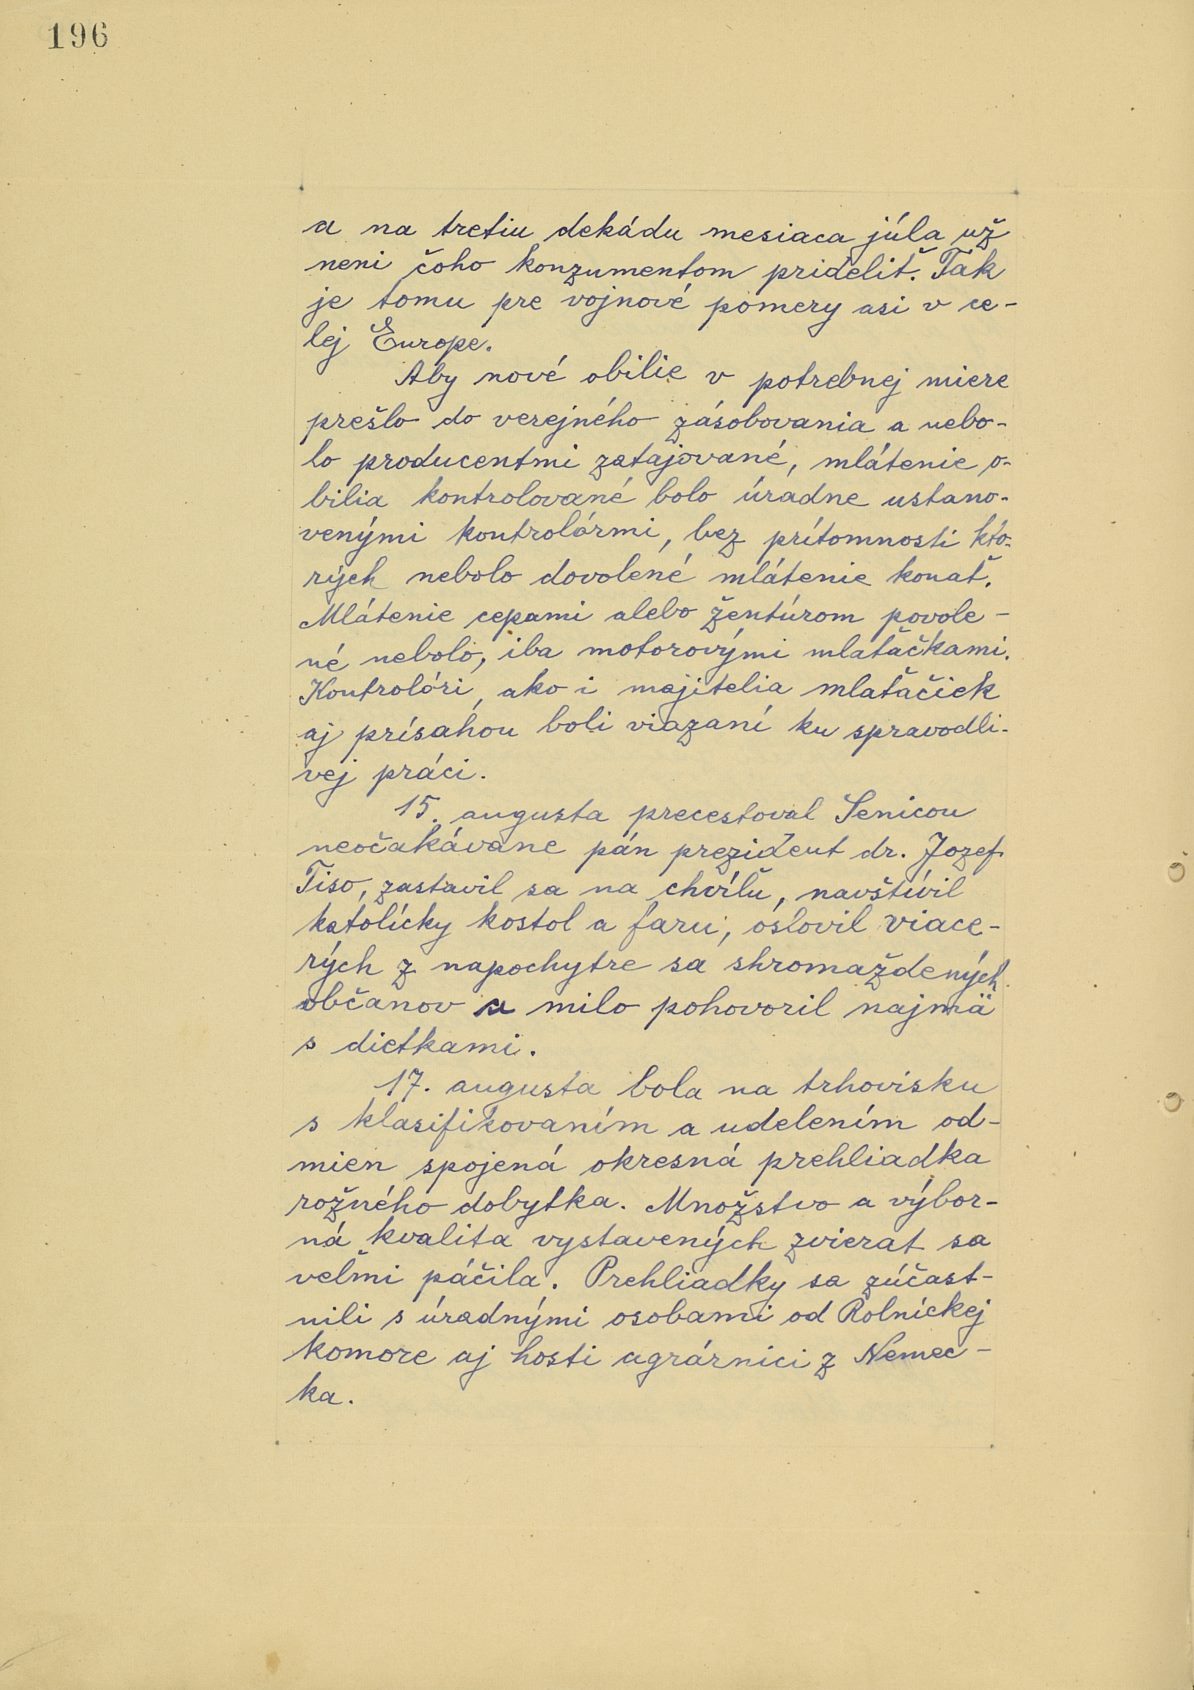 196
a na tretiu dekádu mesiaca júla už
neni čoho konzumentom prideliť. Tak
je tomu pre vojnové pomery asi v ce-
lej Europe.
Aby nové obilie v potrebnej miere
prešlo do verejného zásobovania a nebo-
lo producentmi zatajované, mlátenie o-
bilia kontrolované bolo úradne ustano-
venými kontrolórmi, bez prítomnosti kto-
rých nebolo dovolené mlátenie konať.
Mlátenie cepami alebo žentúrom povole-
né nebolo, iba motorovými mlaťačkami.
Kontrolóri, ako i majitelia mlaťačiek
aj prísahou boli viazaní ku spravodli-
vej práci.
15. augusta precestoval Senicou
neočakávane pán prezident dr. Jozef
Tiso, zastavil sa na chvíľu, navštívil
katolícky kostol a faru, oslovil viace-
rých z napochytre sa shromaždených
občanov a milo pohovoril najmä
s dietkami.
17. augusta bola na trhovisku
s klasifikovaním a udelením od-
mien spojená okresná prehliadka
rožného dobytka. Množstvo a výbor-
ná kvalita vystavených zvierat sa
veľmi páčila. Prehliadky sa zúčast-
nili s úradnými osobami od Rolníckej
komore aj hosti agrárnici z Nemec-
ka.